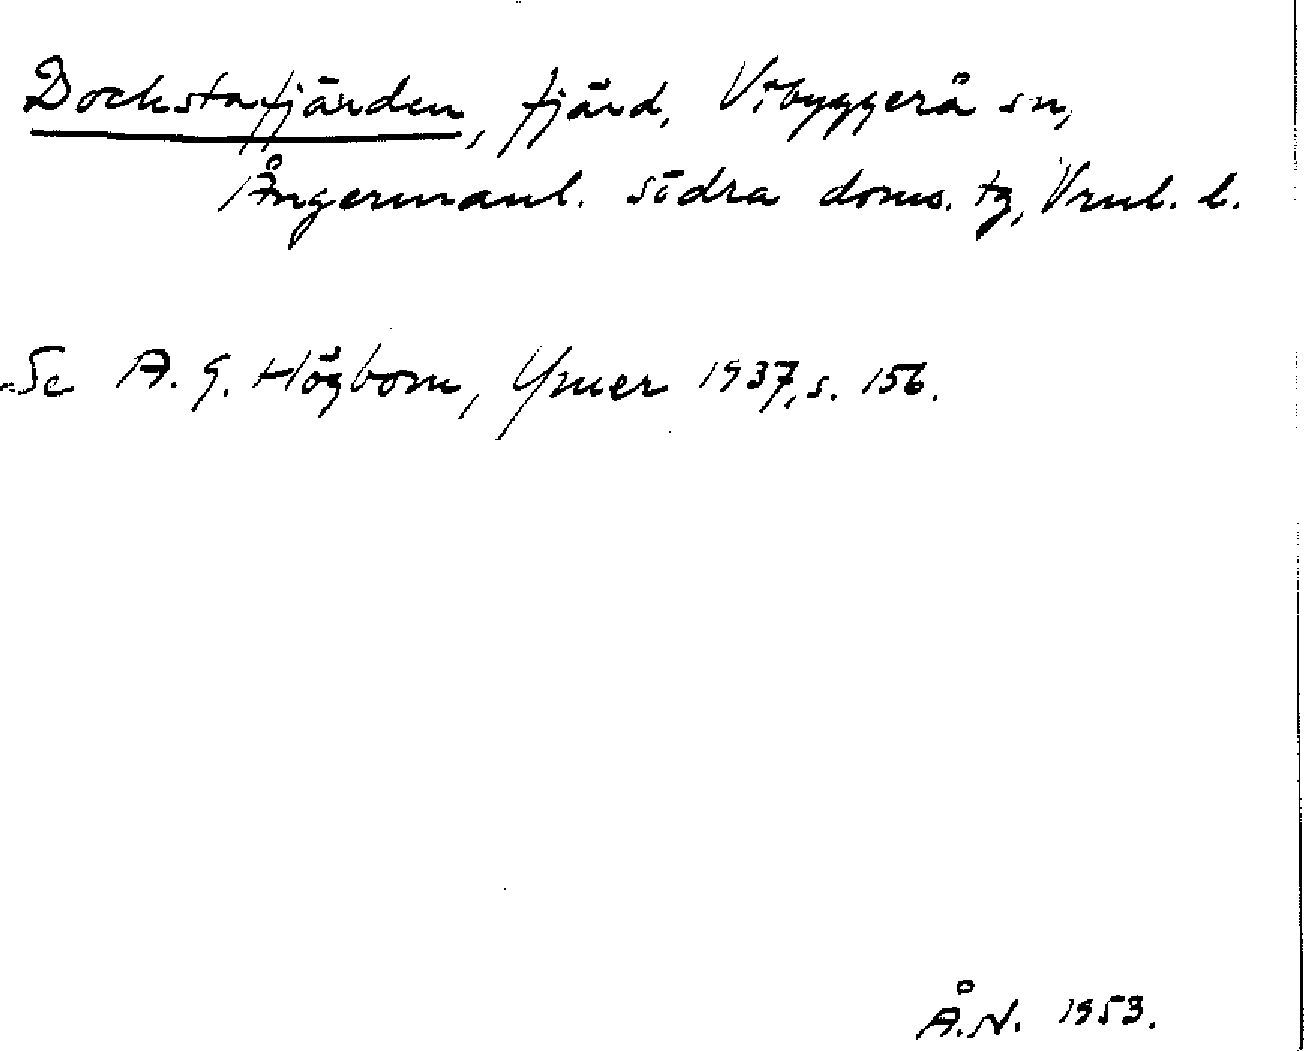 Dockstafjärden, fjärd, Vibyggerå sn,
Ångermanl. södra doms. tg, Vrnl. l.
Se A. G. Högbom, Ymer 1937, s. 156.
Å.N. 1953.